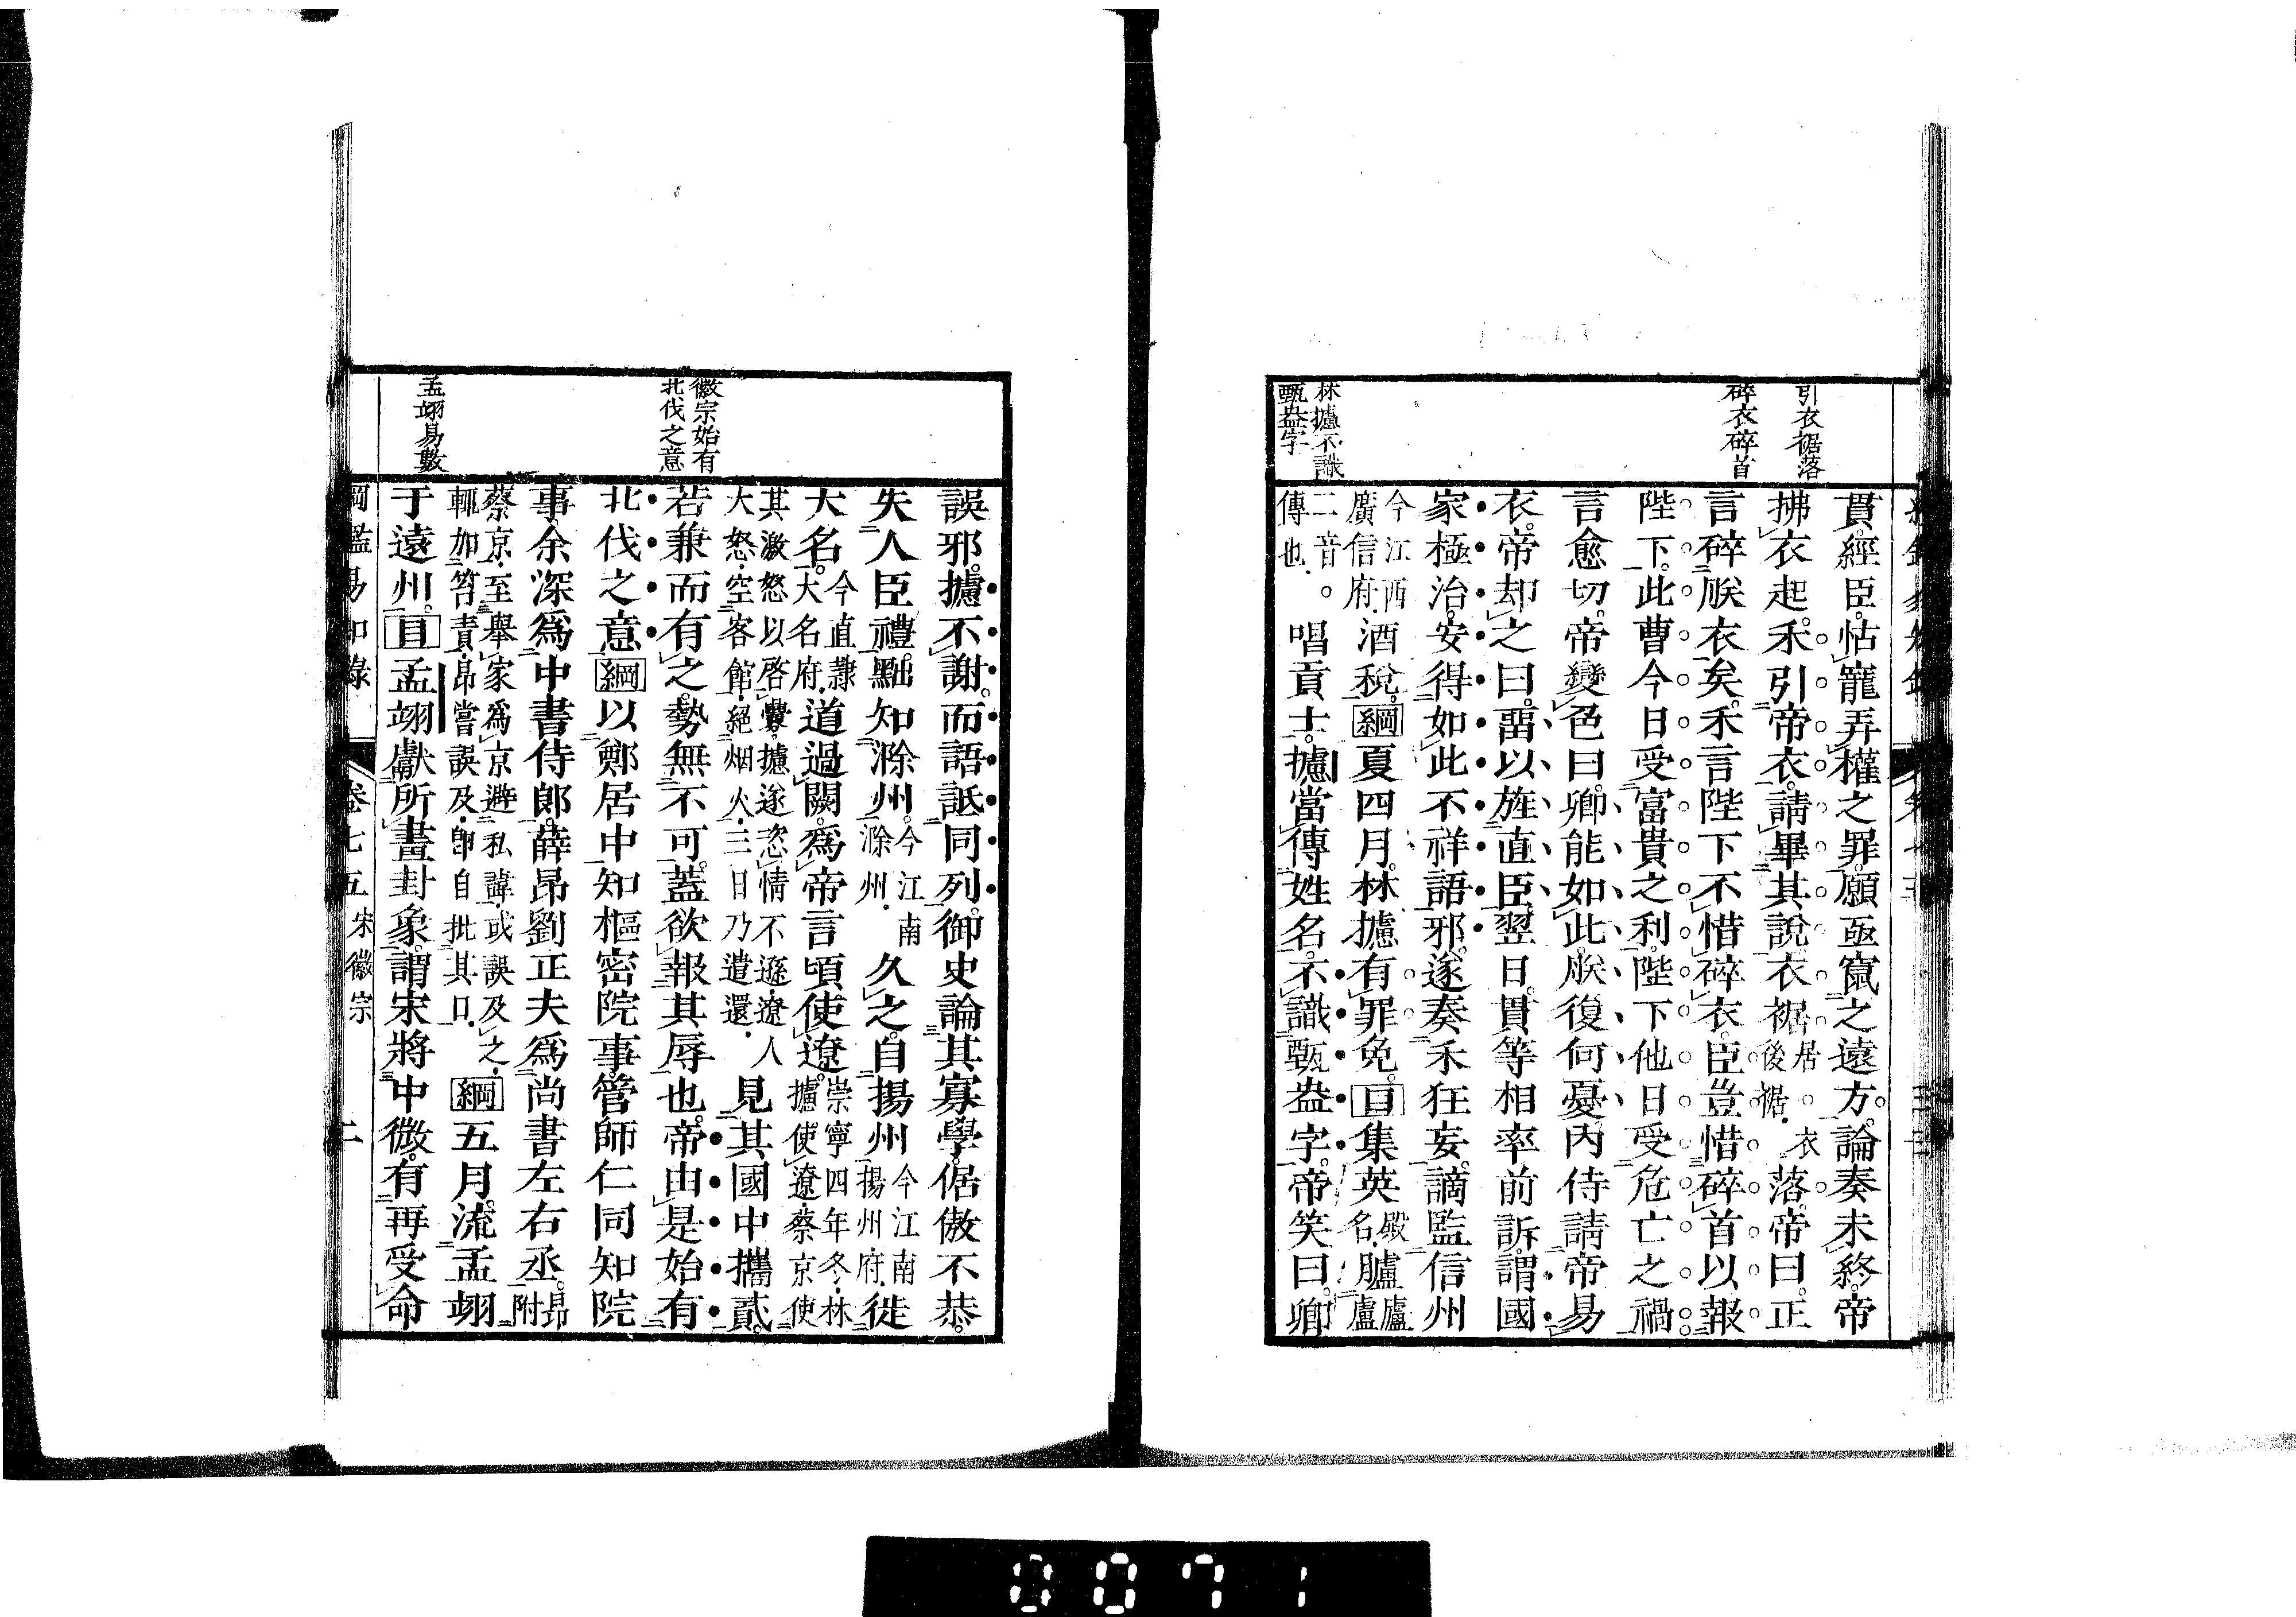 引衣裾落
碎衣碎首
林攄不識
甄盎字
貫經臣怙寵弄權之罪願亟竄之遠方論奏未終帝
拂衣起禾引帝衣請畢其說衣裾居○後裾衣落帝曰正
言碎朕衣矣禾言陛下不惜碎衣臣豈惜碎首以報
陛下此曹今日受富貴之利陛下他日受危亡之禍
言愈切帝變色曰卿能如此朕復何憂內侍請帝易
衣帝却之曰畱以旌直臣翌日貫等相率前訴謂國
家極治安得如此不祥語邪遂奏禾狂妄謫監信州
今江西廣信府酒稅綱夏四月林攄有罪免目集英殿名臚廬臚
二音○傳也唱貢士攄當傳姓名不識甄盎字帝笑曰卿
徽宗始有
北伐之意
孟翊易數
誤邪攄不謝而語詆同列御史論其寡學倨傲不恭
失人臣禮黜知滁州今江南滁州久之自揚州今江南揚州府徙
大名今直隸大名府道過闕為帝言頃使遼崇寧四年冬林攄使遼蔡京使
其激怒以啓釁攄遂恣情不遜遼人大怒空客館絕烟火三日乃遣還見其國中攜貳
若兼而有之勢無不可蓋欲報其辱也帝由是始有
北伐之意綱以鄭居中知樞密院事管師仁同知院
事余深為中書侍郎薛昂劉正夫為尚書左右丞昂附
蔡京至舉家為京避私諱或誤及之輒加笞責昂嘗誤及卽自批其口綱五月流孟翊
于遠州目孟翊獻所畫卦象謂宋將中微有再受命
綱鑑易知錄　卷七五　宋徽宗　二
0071